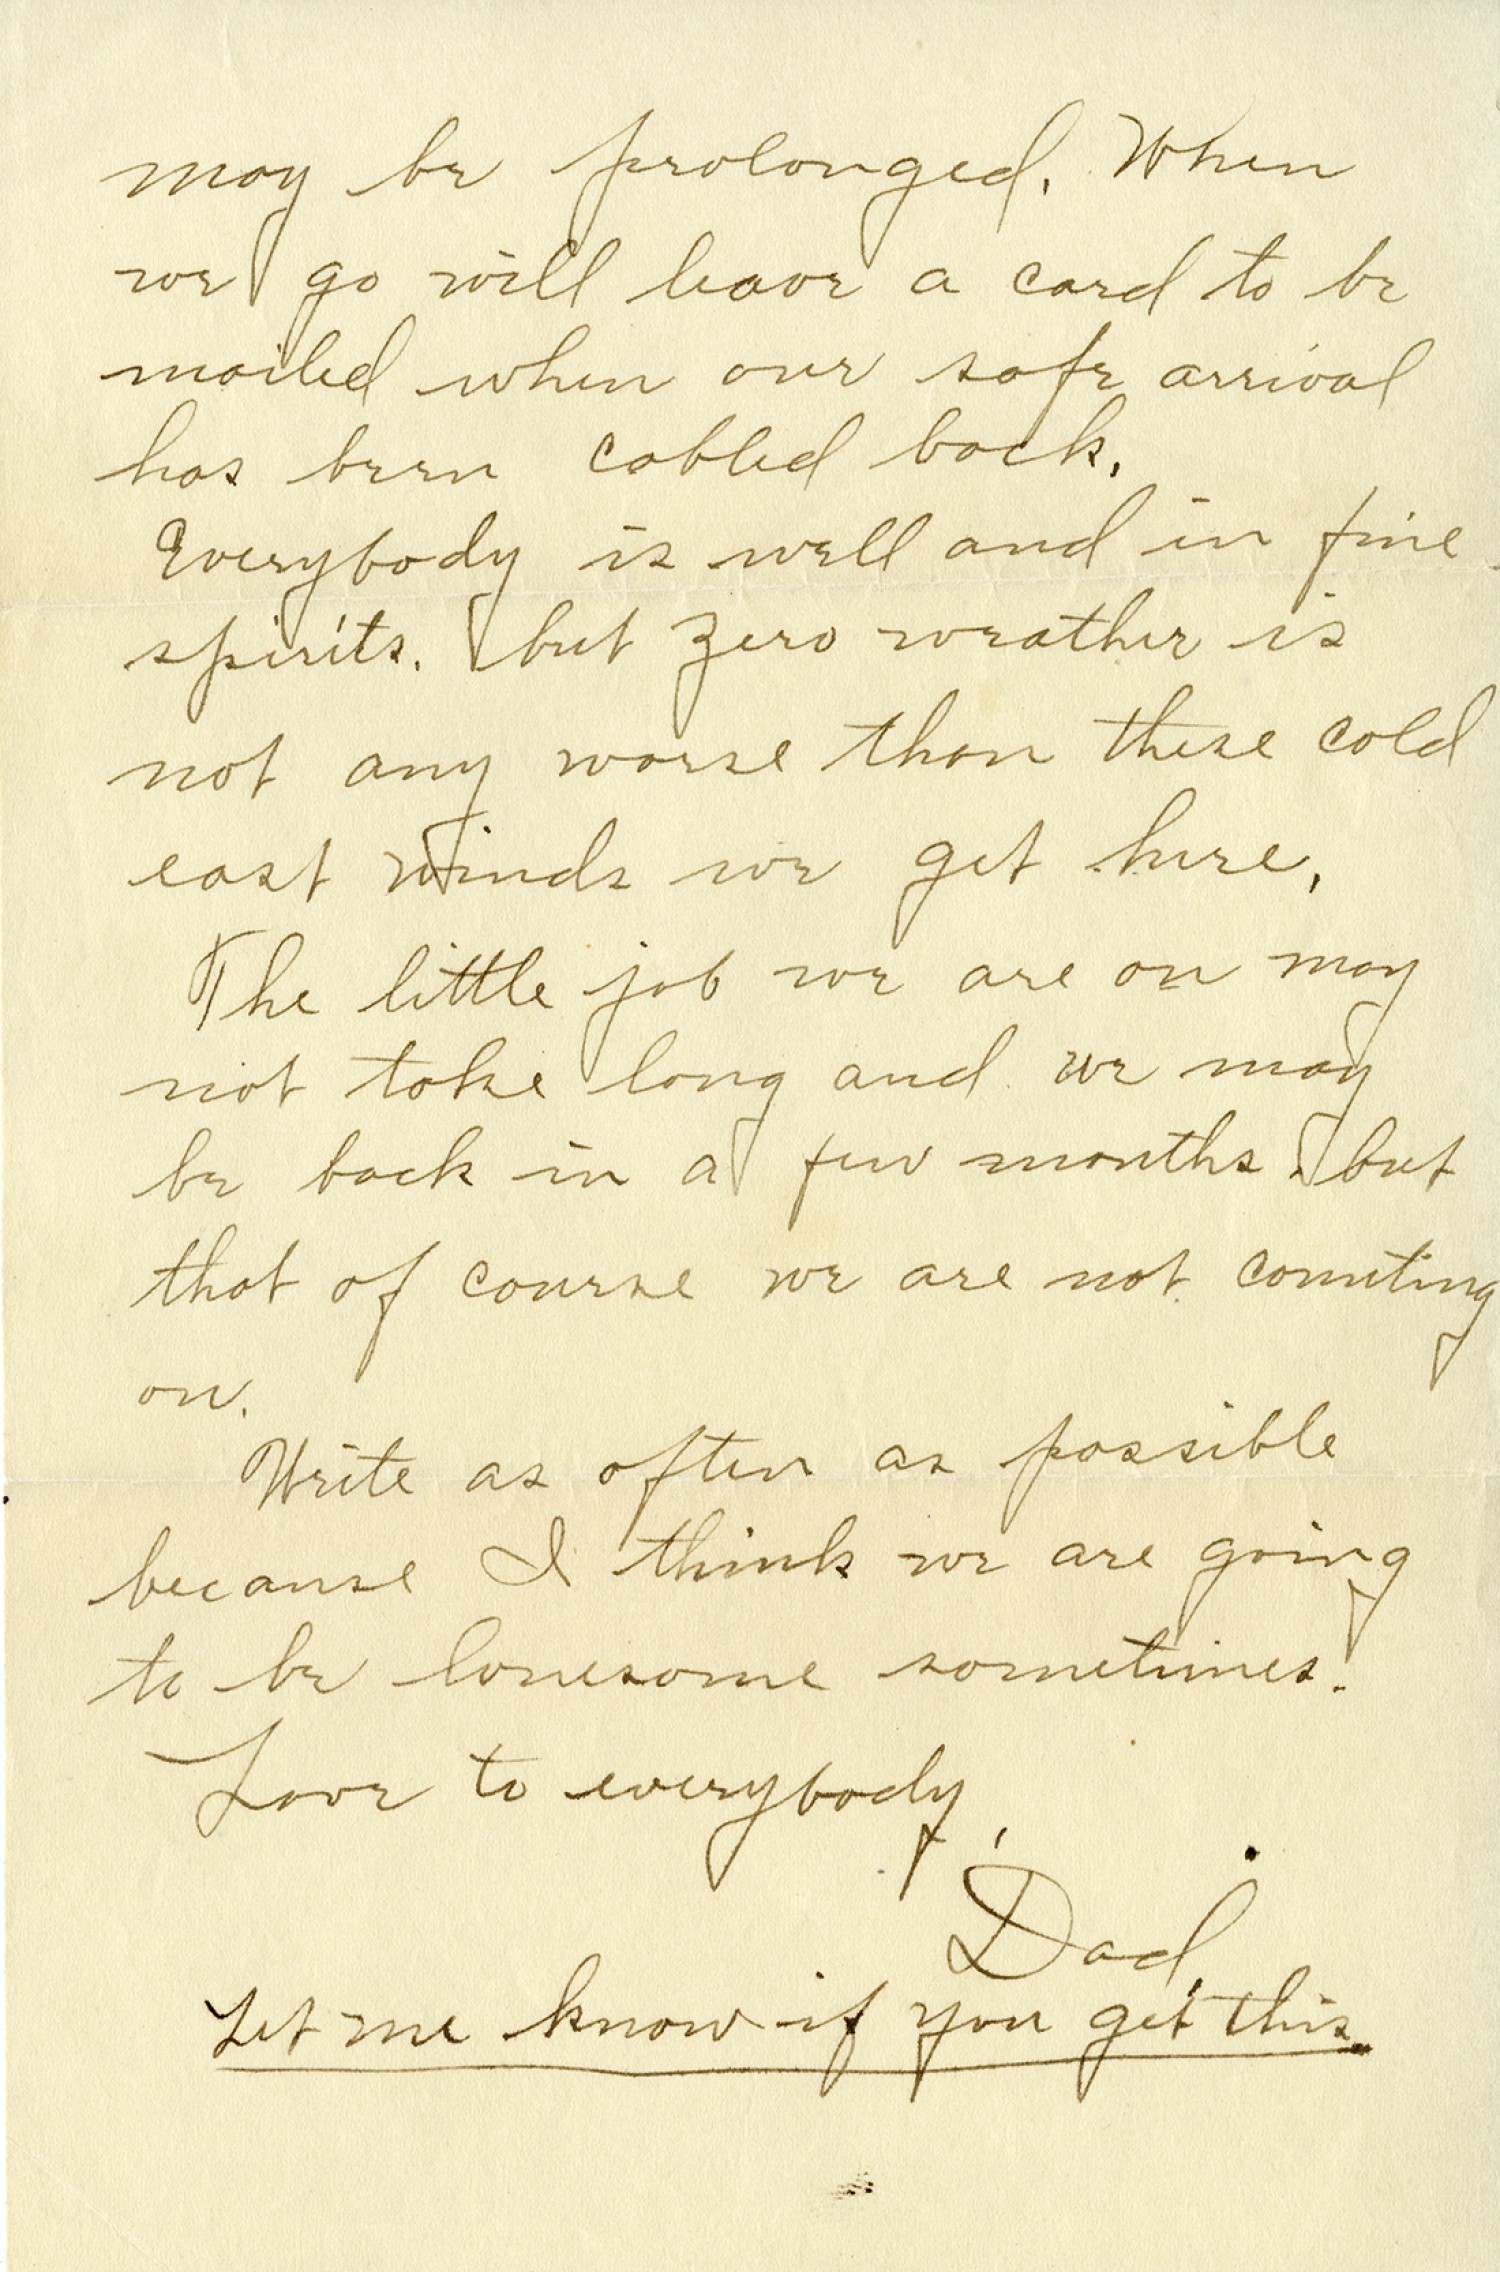 may be prolonged. When
we go will leave a card to be
mailed when our safe arrival
has been cabled back.
Everybody is well and in fine
spirits. but zero weather is
not any worse than these cold
east winds we get here.
The little job we are on may
not take long and we may
be back in a few months. but
that of course we are not counting
on.
Write as often as possible
because I think we are going
to be lonesome sometimes.
Love to everybody,
Dad.
Let me know if you get this.